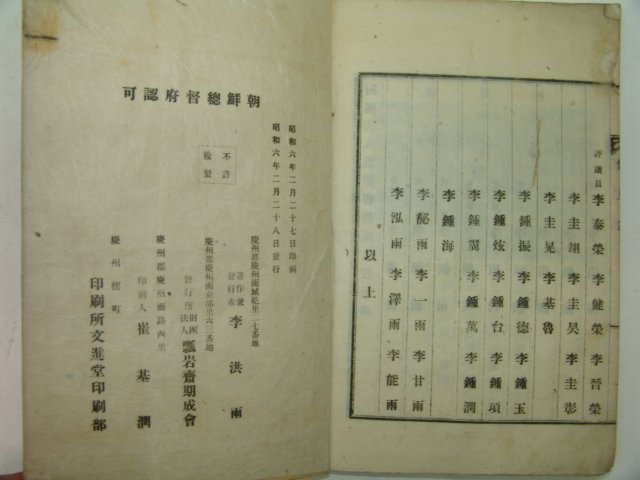 評議員 李泰榮 李健榮 李晉榮
李圭翊 李圭昊 李圭彰
李圭晃 李基魯
李鍾振 李鍾德 李鍾玉
李鍾炫 李鍾台 李鍾項
李鍾翼 李鍾萬 李鍾潤
李鍾海
李秘雨 李一雨 李甘雨
李泓雨 李澤雨 李能雨
以上
昭和六年二月二十七日印刷
昭和六年二月二十八日發行
朝鮮總督府認可
不許
複製
慶州郡慶州面城乾里二七番地
著作兼
發行者 李洪雨
慶州郡慶州面東部里六二番地
發行所 財團
法人 瓢岩齋期成會
慶州郡慶州面路西里
印刷人 崔基潤
慶州櫻町
印刷所文進堂印刷部